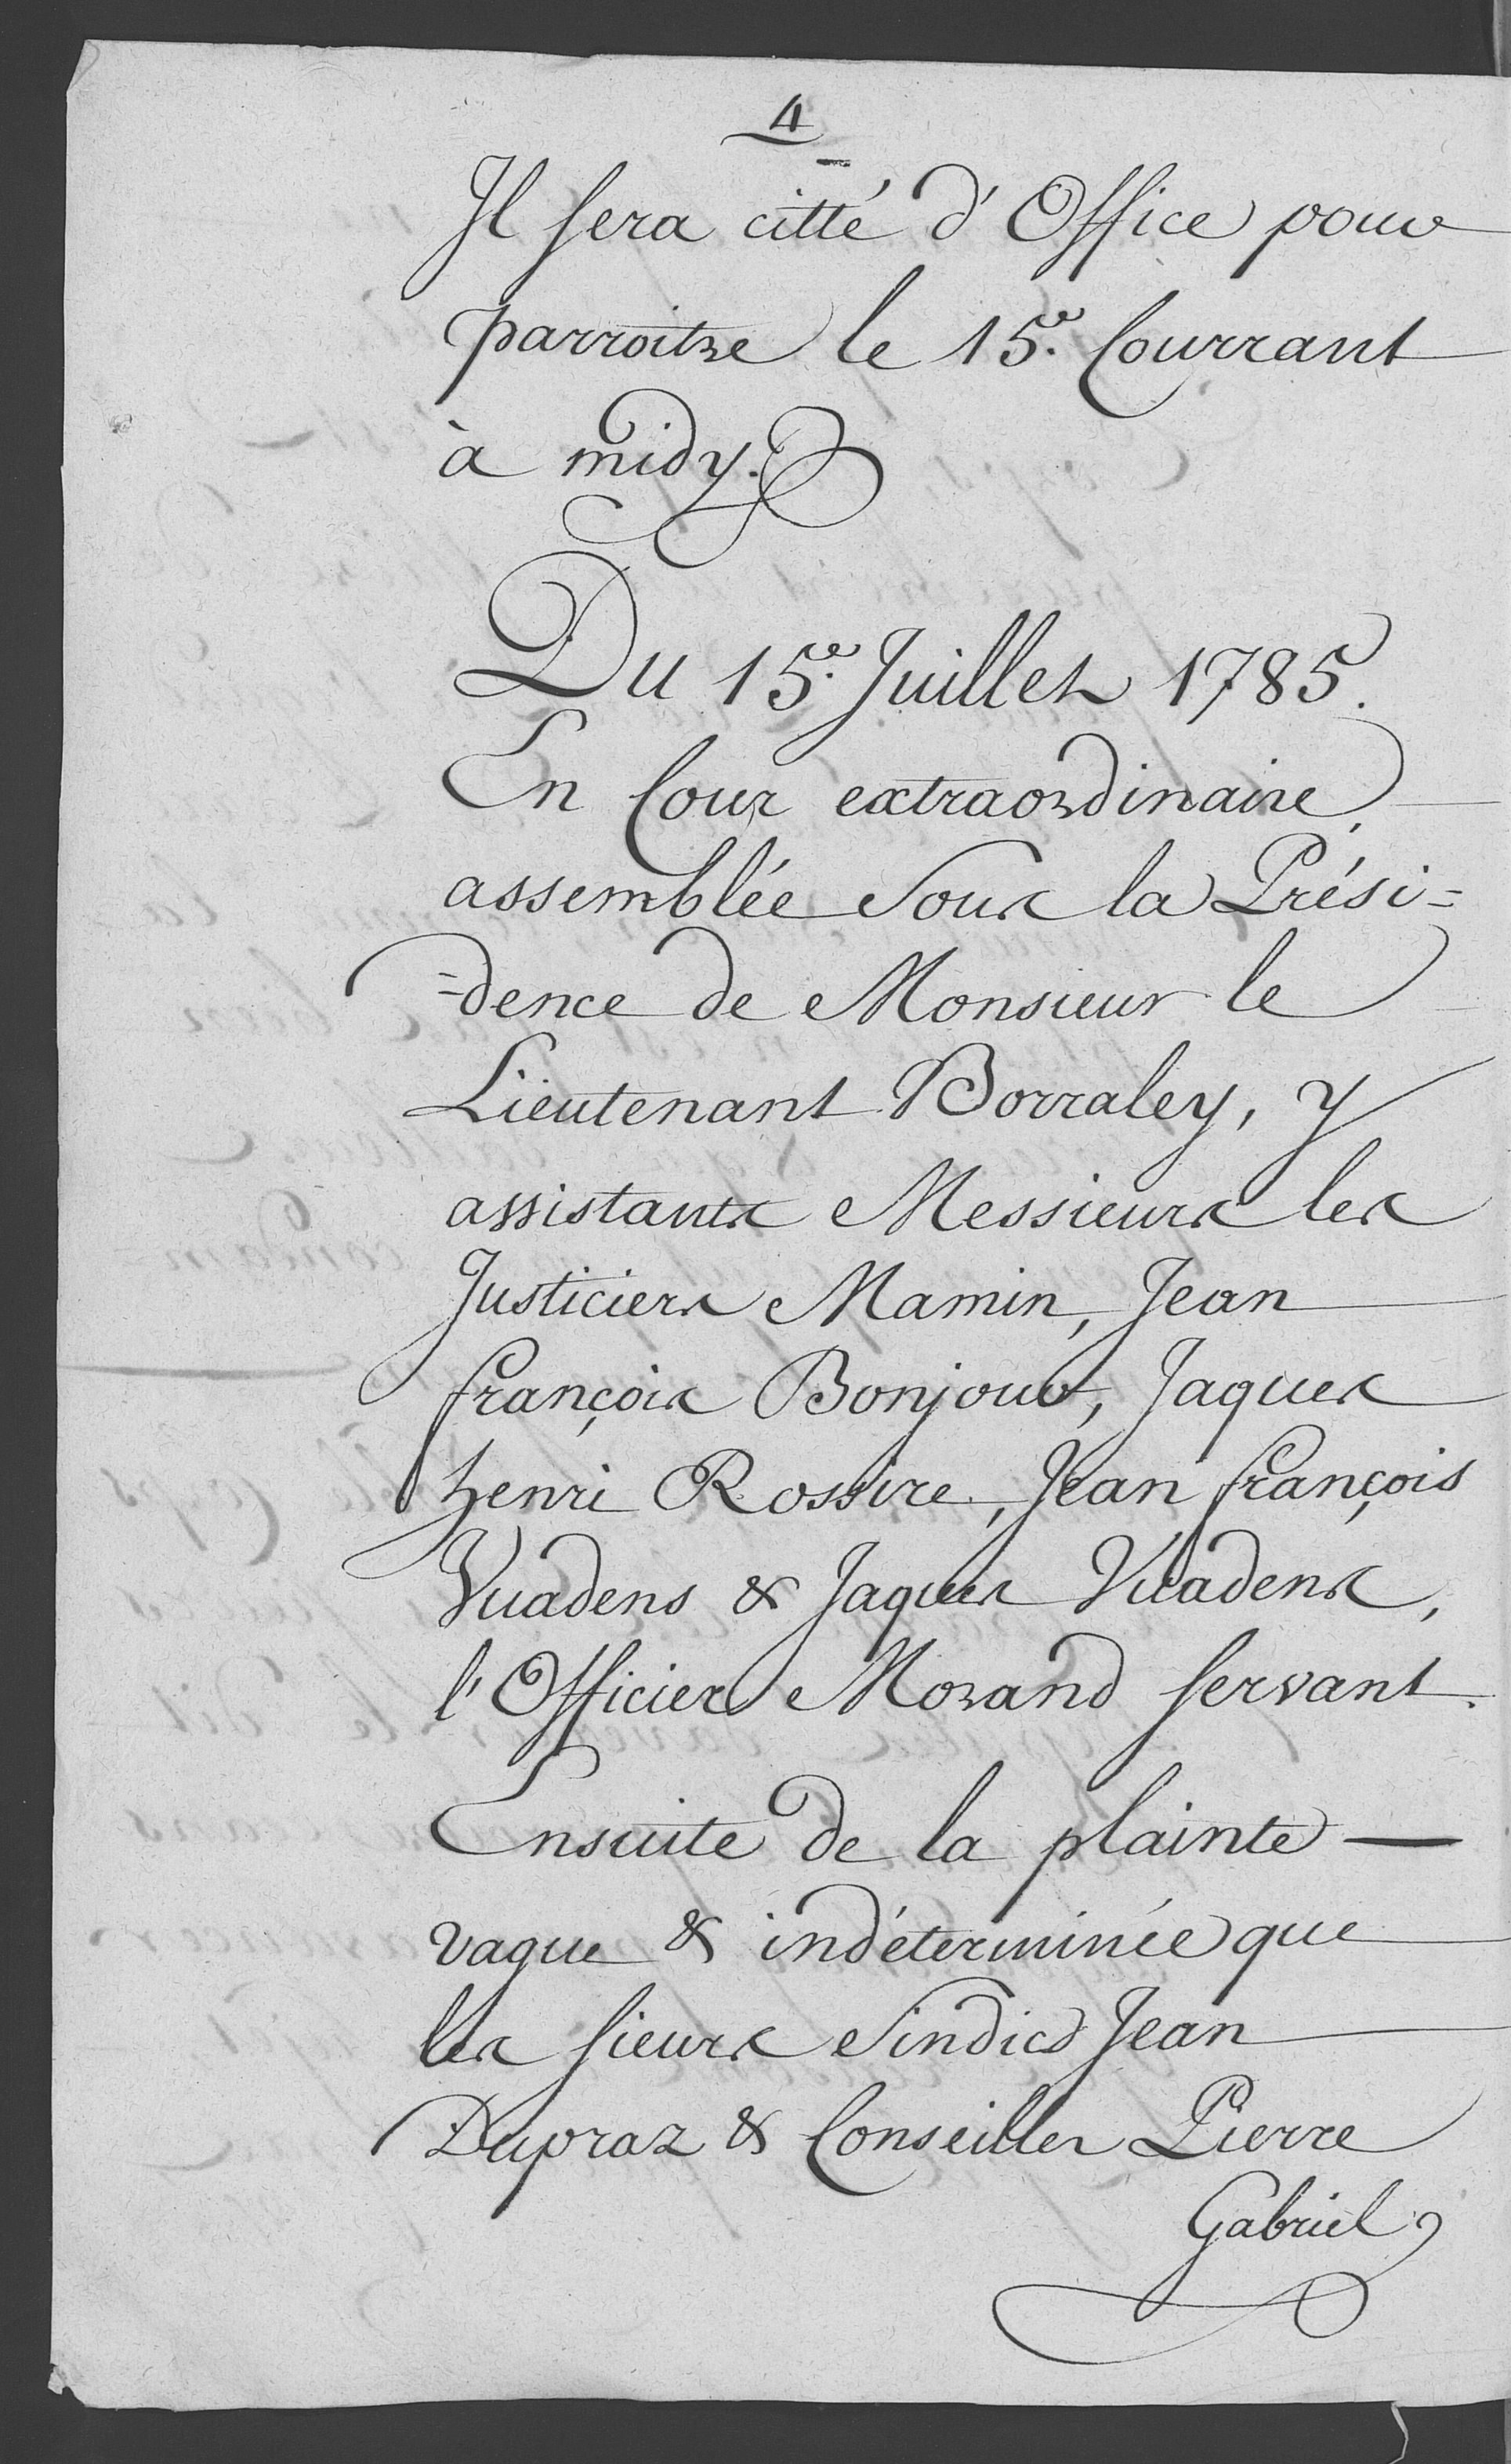 4
Il sera citté d'Office pour
parroitre le 15.e Courrant
à midy.
Du 15.e Juillet 1785.
En Cour extraordinaire,
assemblée sous la Prési=
=dence de Monsieur le
Lieutenant Borraley, y
assistants Messieurs les
Justiciers Mamin, Jean
françois Bonjour, Jaques
henri Rossire, Jean françois
Vuadens & Jaques Vuadens,
l'Officier Morand servant.
Ensuite de la plainte —
vague & indéterminée que
les sieurs Sindics Jean
Dupraz & Conseiller Pierre
Gabriel